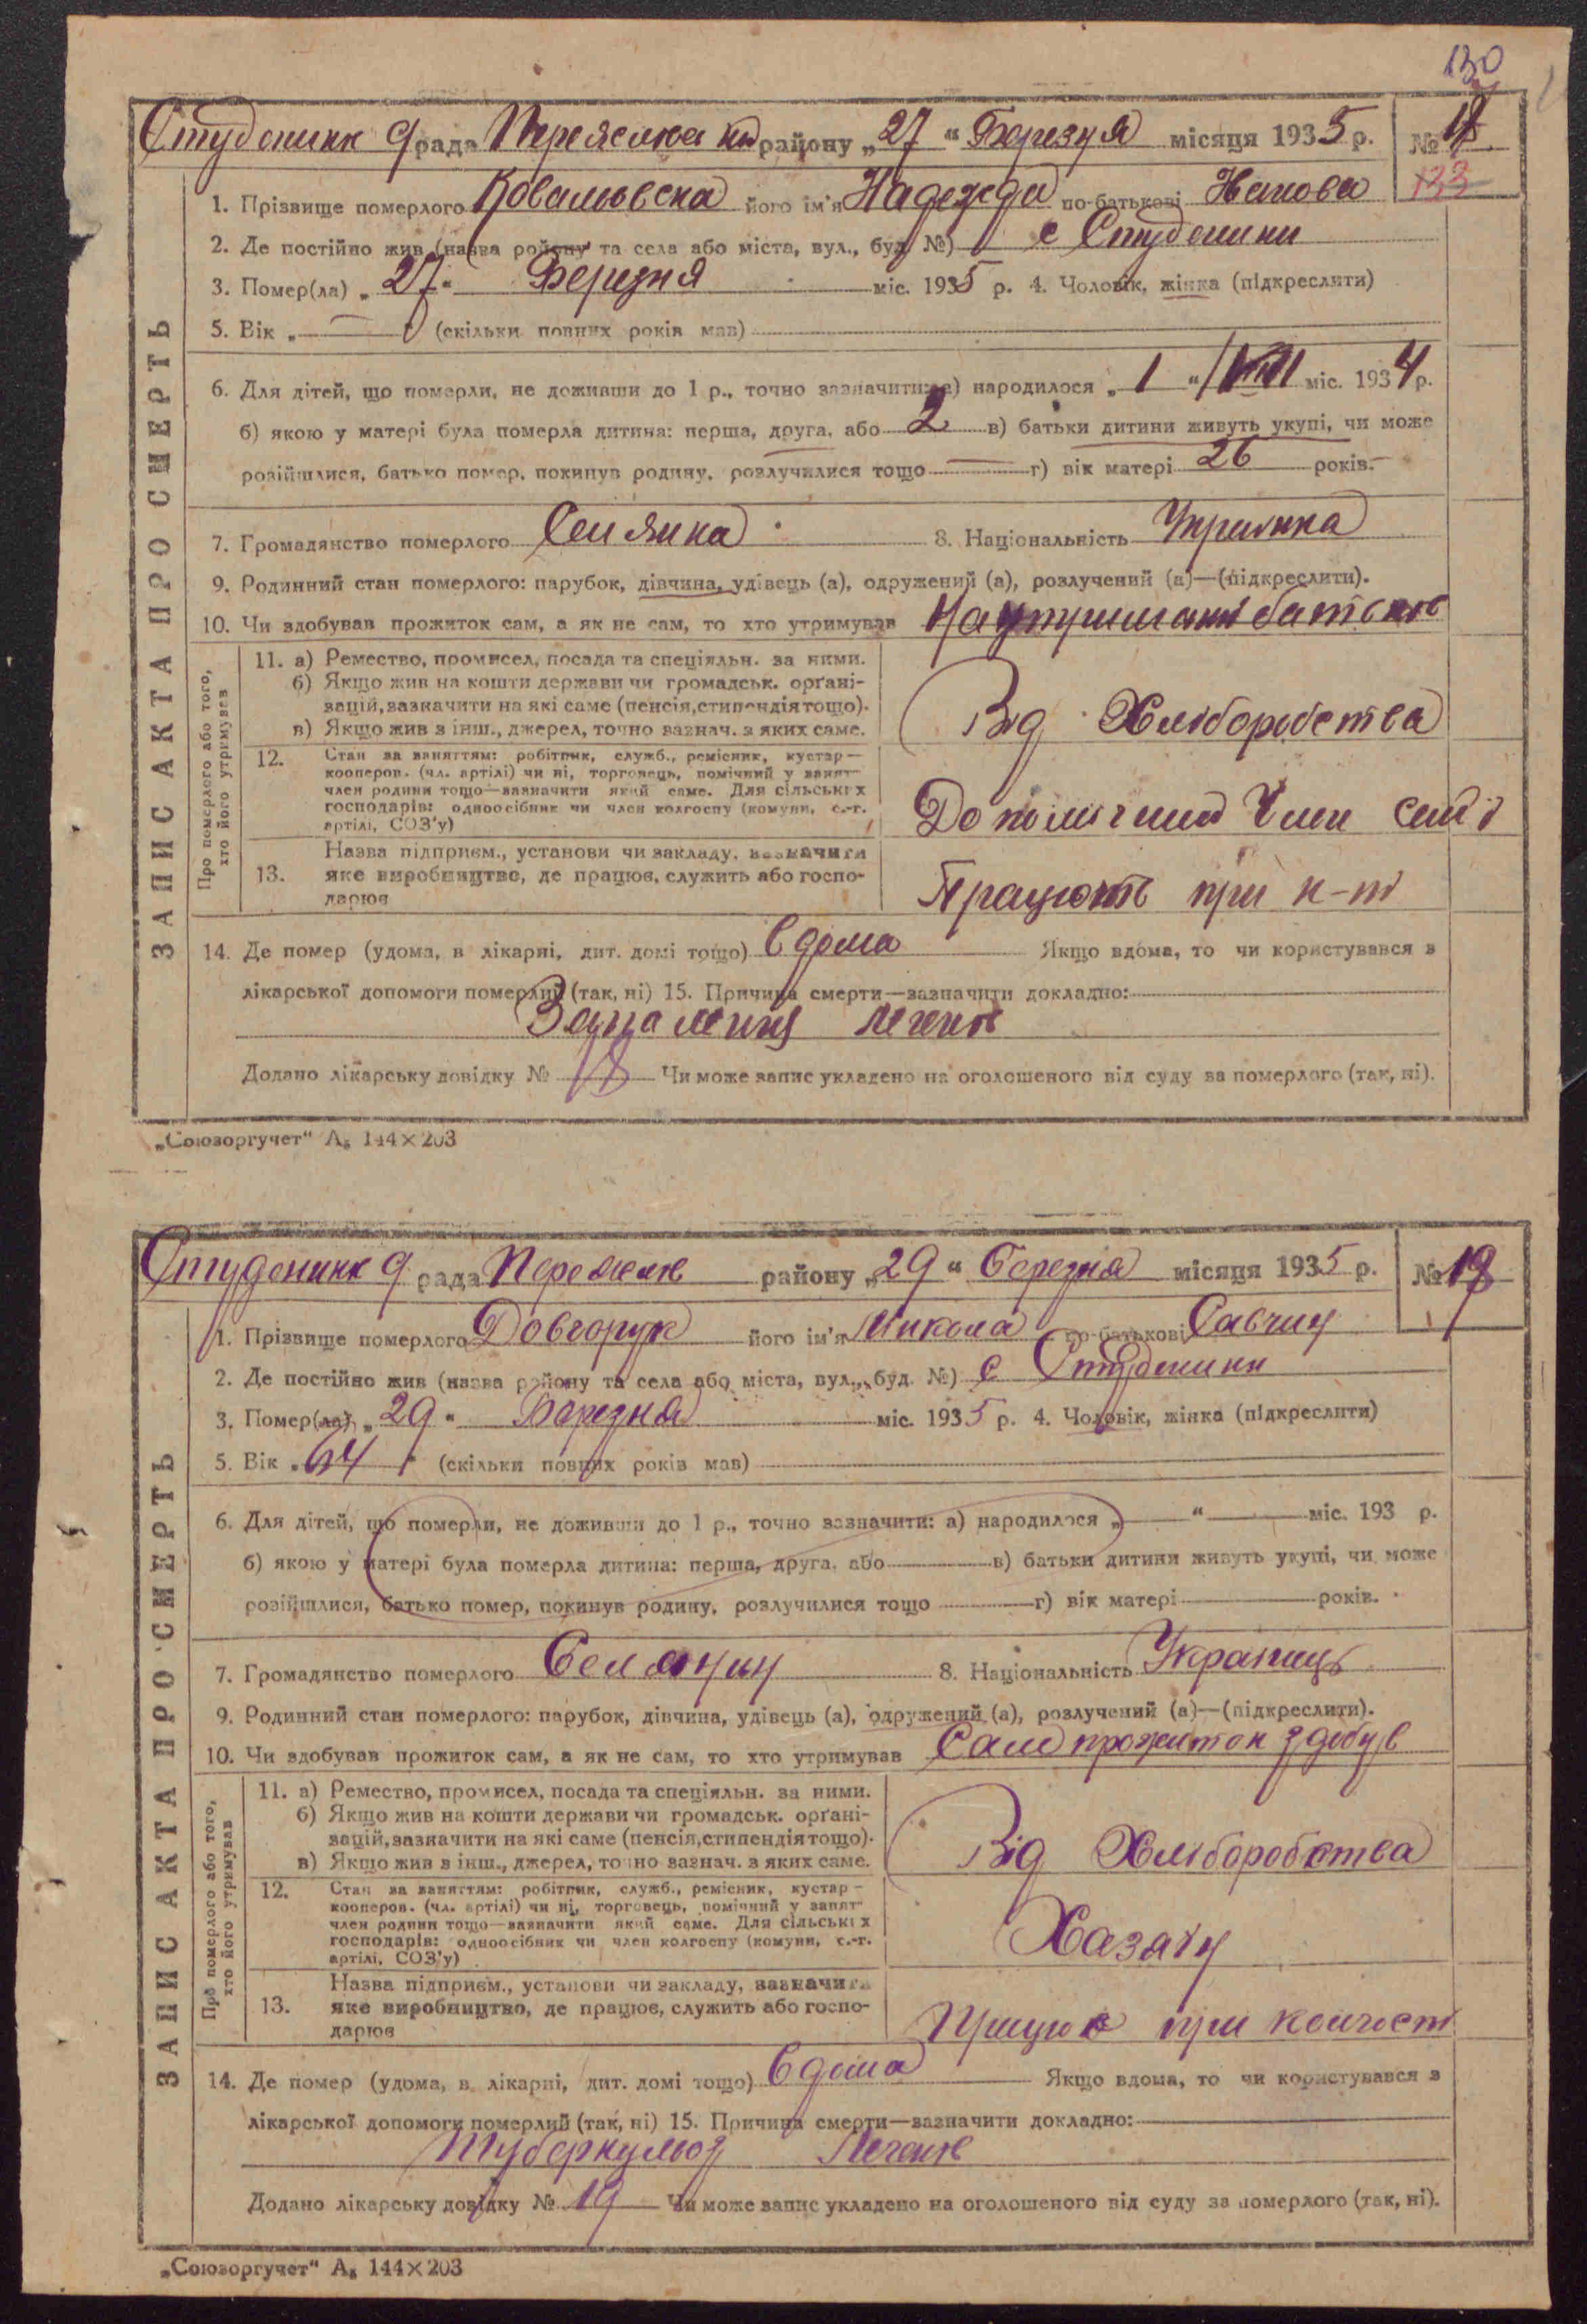 130
Студеник рада Переяслав району „27“ Березня місяця 1935 р. № 18
133
1. Прізвище померлого Ковальовска його ім'я Надежда по-батькові
2. Де постійно жив (назва району та села або міста, вул., буд. №) с Студеники
3. Помер(ла) „27“ Березня міс. 1935 р. 4. Чоловік, жінка (підкреслити)
5. Вік „ — “ (скільки повних років мав)
6. Для дітей, що померли, не доживши до 1 р., точно зазначити: а) народилося „1“ VIII міс. 1934 р.
б) якою у матері була померла дитина: перша, друга, або 2 в) батьки дитини живуть укупі, чи може
розійшлися, батько помер, покинув родину, розлучилися тощо — г) вік матері 26 років.
7. Громадянство померлого Селянка 8. Національність Українка
9. Родинний стан померлого: парубок, дівчина, удівець (а), одружений (а), розлучений (а)—(підкреслити).
10. Чи здобував прожиток сам, а як не сам, то хто утримував На утриманні батьків
ЗАПИС АКТА ПРО СМЕРТЬ
Про померлого або того, хто його утримував
11. а) Ремество, промисел, посада та спеціяльн. за ними.
б) Якщо жив на кошти держави чи громадськ. орґані-
зацій, зазначити на які саме (пенсія, стипендія тощо).
в) Якщо жив з інш., джерел, точно зазнач. з яких саме.
Від Хліборобства
12. Стан за заняттям: робітник, служб., ремісник, кустар—
кооперов. (чл. артілі) чи ні, торговець, помічний у занят—
член родини тощо—зазначити який саме. Для сільських
господарів: одноосібник чи член колгоспу (комуни, с.-г.
артілі, СОЗ'у)
Допоміжний Член семї
Назва підприєм., установи чи закладу, зазначити
13. яке виробництво, де працює, служить або госпо-
дарює
Працюють при к-ті
14. Де помер (удома, в лікарні, дит. домі тощо) вдома Якщо вдома, то чи користувався з
лікарської допомоги померлий (так, ні) 15. Причина смерти—зазначити докладно:
Запалення легенів
Додано лікарську довідку № 18 Чи може запис укладено на оголошеного від суду за померлого (так, ні).
„Союзоргучет“ А₅ 144×203
Студеник рада Переяслав району „29“ березня місяця 1935 р. № 19
1. Прізвище померлого Довгорук його ім'я Микола по-батькові Савчин
2. Де постійно жив (назва району та села або міста, вул., буд. №) с Студеники
3. Помер(ла) „29“ Березня міс. 1935 р. 4. Чоловік, жінка (підкреслити)
5. Вік „64“ (скільки повних років мав)
6. Для дітей, що померли, не доживши до 1 р., точно зазначити: а) народилося „ — “ міс. 193 р.
б) якою у матері була померла дитина: перша, друга, або — в) батьки дитини живуть укупі, чи може
розійшлися, батько помер, покинув родину, розлучилися тощо — г) вік матері — років.
7. Громадянство померлого Селянин 8. Національність Українець
9. Родинний стан померлого: парубок, дівчина, удівець (а), одружений (а), розлучений (а)—(підкреслити).
10. Чи здобував прожиток сам, а як не сам, то хто утримував Сам прожиток здобув
ЗАПИС АКТА ПРО СМЕРТЬ
Про померлого або того, хто його утримував
11. а) Ремество, промисел, посада та спеціяльн. за ними.
б) Якщо жив на кошти держави чи громадськ. орґані-
зацій, зазначити на які саме (пенсія, стипендія тощо).
в) Якщо жив з інш., джерел, точно зазнач. з яких саме.
Від Хліборобства
12. Стан за заняттям: робітник, служб., ремісник, кустар—
кооперов. (чл. артілі) чи ні, торговець, помічний у занят—
член родини тощо—зазначити який саме. Для сільських
господарів: одноосібник чи член колгоспу (комуни, с.-г.
артілі, СОЗ'у)
Хазаїн
Назва підприєм., установи чи закладу, зазначити
13. яке виробництво, де працює, служить або госпо-
дарює
Працює при
14. Де помер (удома, в лікарні, дит. домі тощо) вдома Якщо вдома, то чи користувався з
лікарської допомоги померлий (так, ні) 15. Причина смерти—зазначити докладно:
Туберкульоз Легенів
Додано лікарську довідку № 19 Чи може запис укладено на оголошеного від суду за померлого (так, ні).
„Союзоргучет“ А₅ 144×203